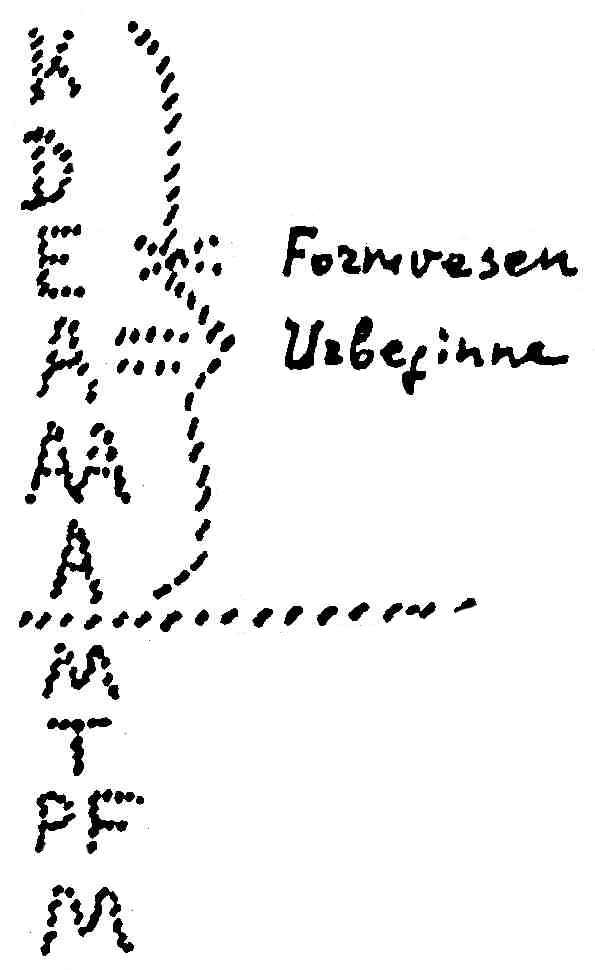 K
D
E Formwesen
A = Urbeginne
AA
A
M
T
PF
M